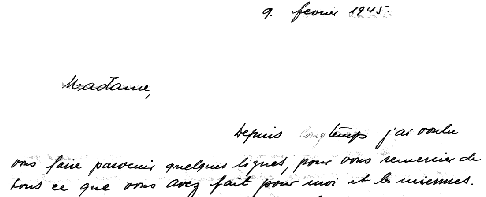 9. fevrier 1945.
Madame,
Depuis longtemps j'ai voulu
vous faire parvenir quelques lignes, pour vous remercier de
tous ce que vous avez fait pour moi et le miennes.